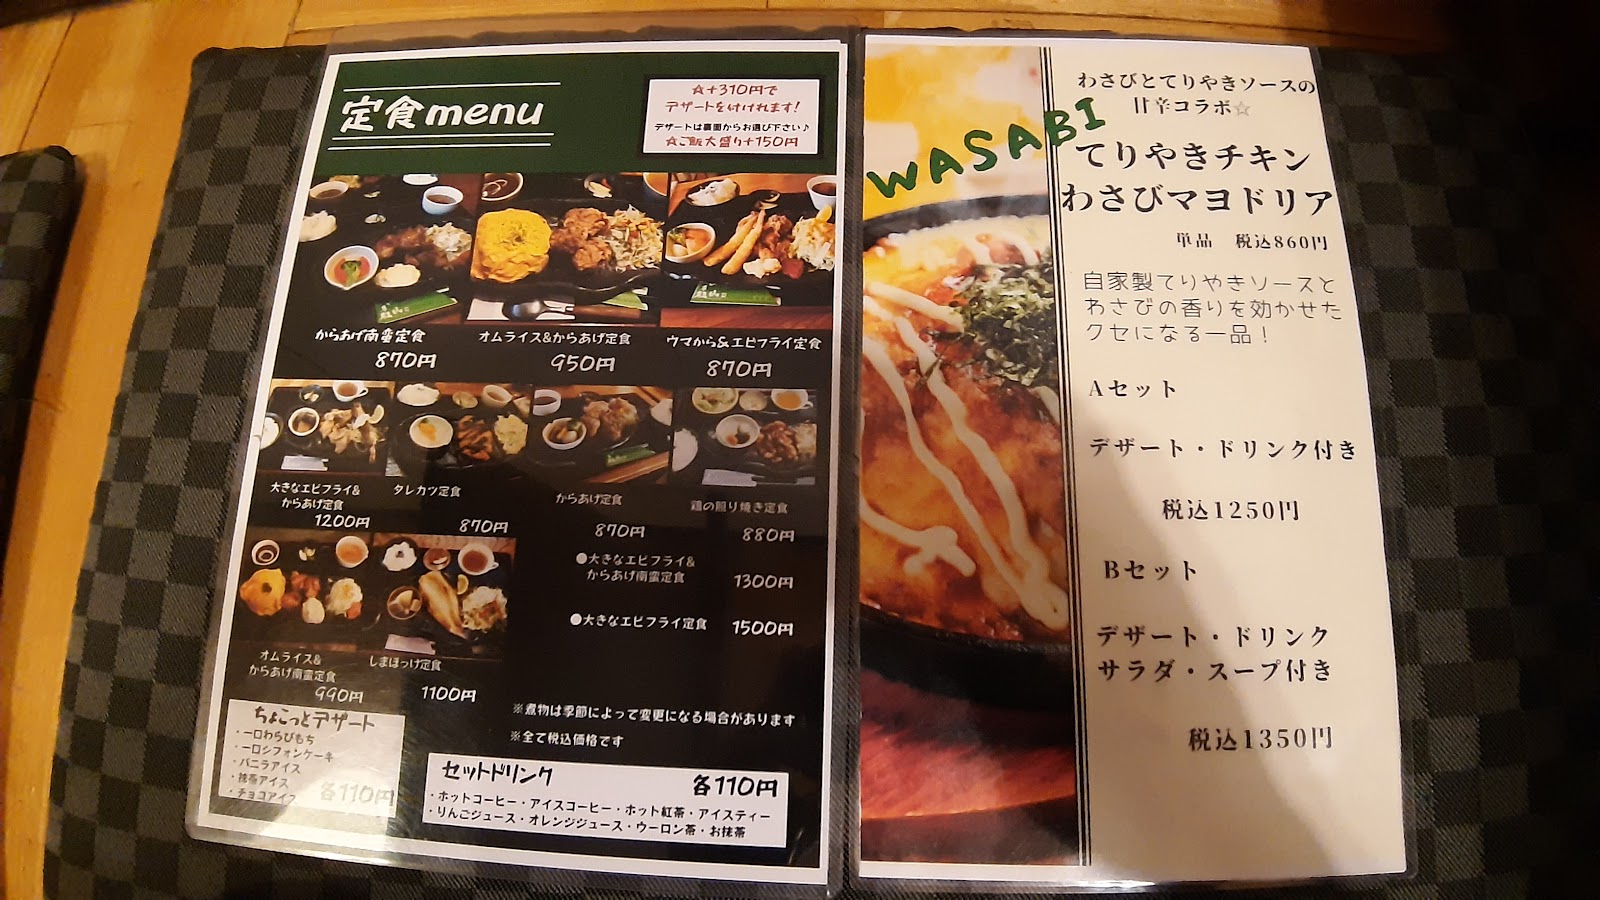 定食menu
☆+310円で
デザートを付けれます!
デザートは裏面からお選び下さい♪
☆ご飯大盛り+150円
からあげ南蛮定食
870円
オムライス&からあげ定食
950円
ウマから&エビフライ定食
870円
大きなエビフライ&
からあげ定食
1200円
タレカツ定食
870円
からあげ定食
870円
鶏の照り焼き定食
880円
●大きなエビフライ&
からあげ南蛮定食
1300円
●大きなエビフライ定食
1500円
オムライス&
からあげ南蛮定食
990円
しまほっけ定食
1100円
※煮物は季節によって変更になる場合があります
※全て税込価格です
ちょこっとデザート
・一口わらびもち
・一口シフォンケーキ
・バニラアイス
・抹茶アイス
・チョコアイス
各110円
セットドリンク
各110円
・ホットコーヒー・アイスコーヒー・ホット紅茶・アイスティー
・りんごジュース・オレンジジュース・ウーロン茶・お抹茶
WASABI
わさびとてりやきソースの
甘辛コラボ☆
てりやきチキン
わさびマヨドリア
単品 税込860円
自家製てりやきソースと
わさびの香りを効かせた
クセになる一品！
Aセット
デザート・ドリンク付き
税込1250円
Bセット
デザート・ドリンク
サラダ・スープ付き
税込1350円